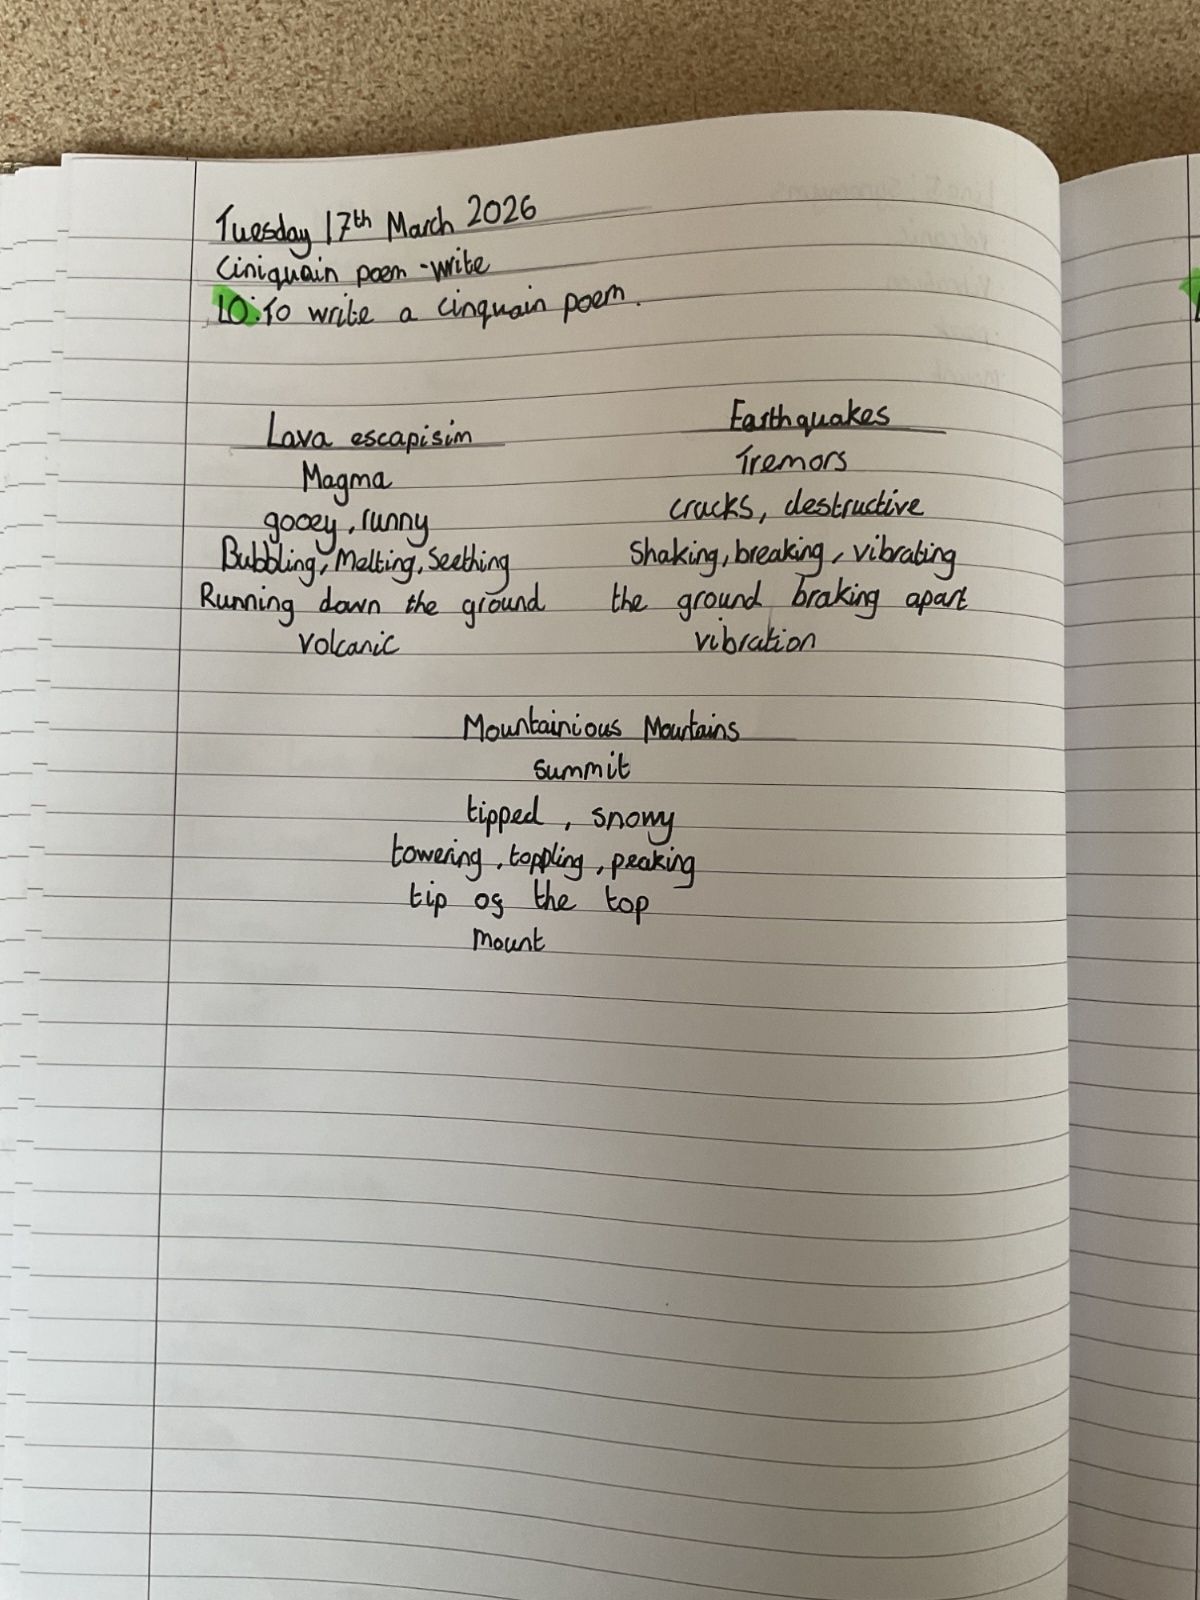 Tuesday 17th March 2026
Ciniquain poem - write
LO: To write a cinquain poem.
Lava escapisim
Magma
gooey, runny
Bubbling, Melting, Seething
Running down the ground
Volcanic
Earthquakes
Tremors
cracks, destructive
Shaking, breaking, vibrating
the ground braking apart
vibration
Mountainious Mountains
summit
tipped, snowy
towering, toppling, peaking
tip of the top
Mount